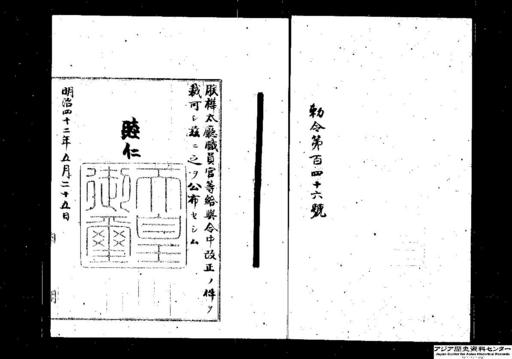 勅令第百四十六號
朕樺太廳職員官等給與令中改正ノ件ヲ
裁可シ茲ニ之ヲ公布セシム
睦仁
天皇御璽
明治四十二年五月二十五日
アジア歴史資料センター
Japan Center for Asian Historical Records